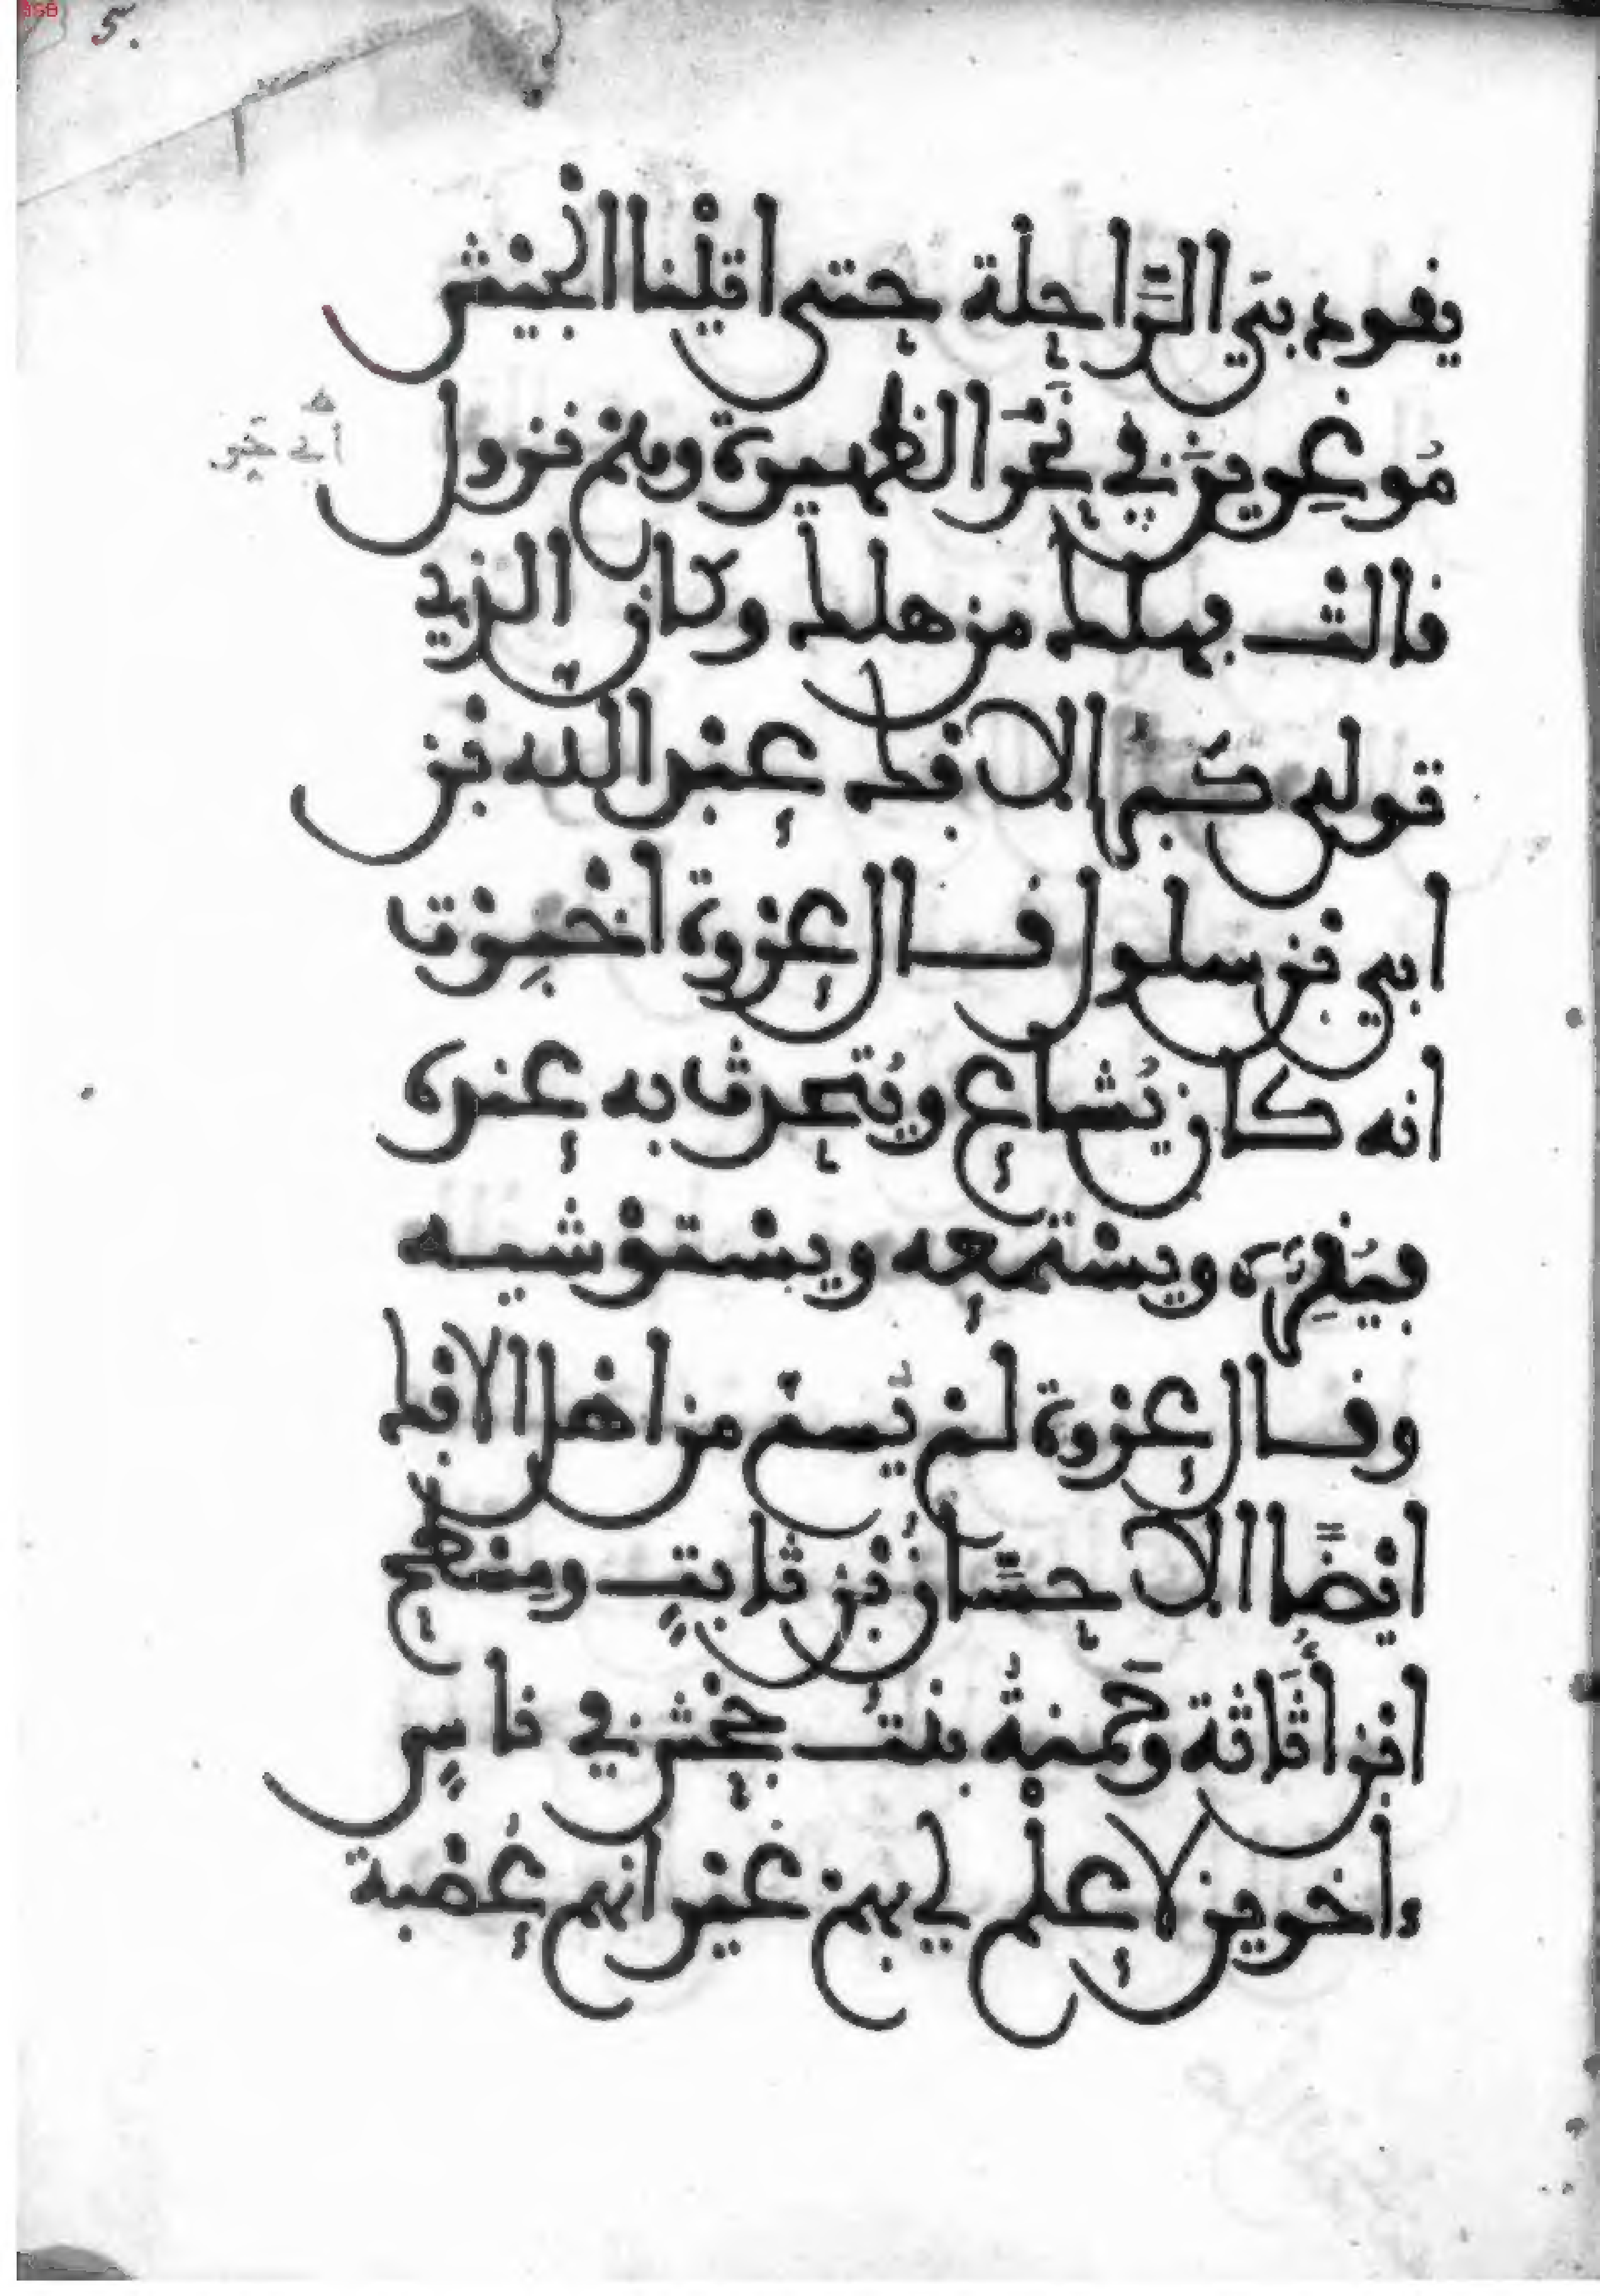 5.
يقود بي الراحلة حتى اتينا الجيش
موغرين في نحر الظهيرة وهم نزول
قالت فهلك من هلك وكان الذي
تولى كبر الافك عبد الله بن
ابي بن سلول قال عروة اخبرت
انه كان يُشاع ويُتحدث به عنده
فيُقِرُّه ويسْتمعه ويسْتوْشيه
وقال عروة لم يُسم من اهل الافك
ايْضًا الا حسَّان بْن ثابتٍ ومسطح
ابن أُثَاثة وحَمنةُ بنتُ جحْش في ناسٍ
ءاخرين لا علْم لي بهم غير انهم عُصْبة